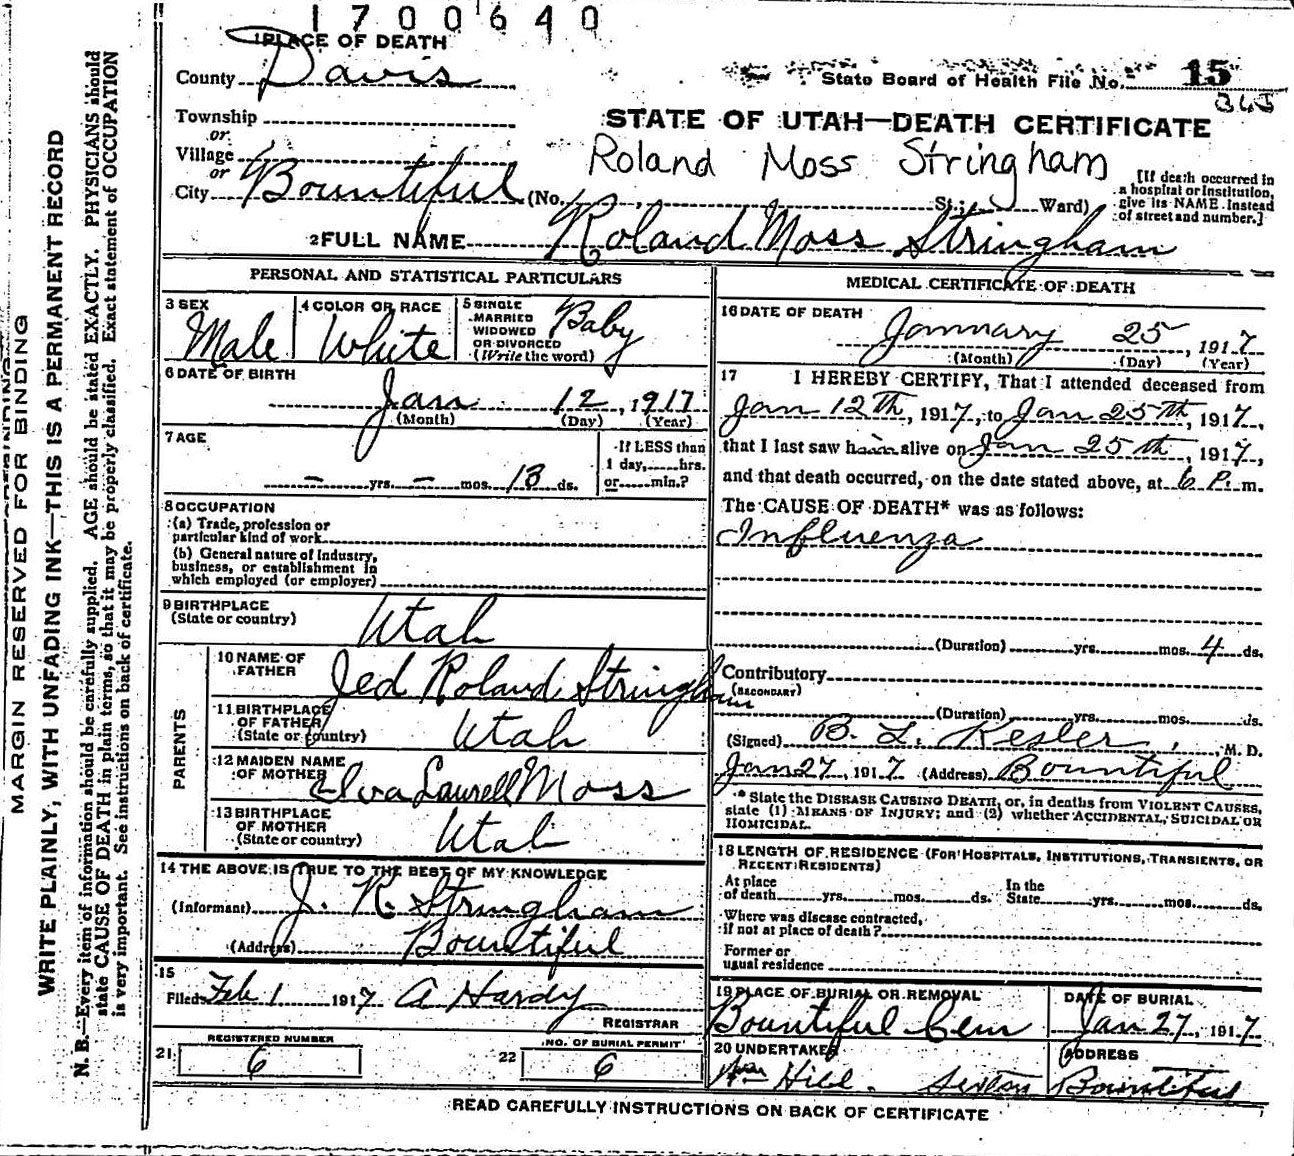 1700640
1 PLACE OF DEATH
County Davis
State Board of Health File No. 15
345
Township
or
Village
or
City Bountiful (No. , St.; Ward)
STATE OF UTAH—DEATH CERTIFICATE
Roland Moss Stringham
[If death occurred in
a hospital or institution,
give its NAME instead
of street and number.]
2 FULL NAME Roland Moss Stringham
PERSONAL AND STATISTICAL PARTICULARS
3 SEX
Male
4 COLOR OR RACE
White
5 SINGLE
MARRIED
WIDOWED
OR DIVORCED
(Write the word)
Baby
6 DATE OF BIRTH
Jan 12, 1917
(Month) (Day) (Year)
7 AGE
– yrs. – mos. 13 ds.
If LESS than
1 day, hrs.
or min.?
8 OCCUPATION
(a) Trade, profession or
particular kind of work
(b) General nature of Industry,
business, or establishment in
which employed (or employer)
9 BIRTHPLACE
(State or country)
Utah
PARENTS
10 NAME OF
FATHER
Jed Roland Stringham
11 BIRTHPLACE
OF FATHER
(State or country)
Utah
12 MAIDEN NAME
OF MOTHER
Elva Laurell Moss
13 BIRTHPLACE
OF MOTHER
(State or country)
Utah
14 THE ABOVE IS TRUE TO THE BEST OF MY KNOWLEDGE
(Informant) J. R. Stringham
(Address) Bountiful
15
Filed Feb 1 1917 A Hardy
REGISTRAR
REGISTERED NUMBER
21 6
NO. OF BURIAL PERMIT
22 6
MEDICAL CERTIFICATE OF DEATH
16 DATE OF DEATH
January 25, 1917
(Month) (Day) (Year)
17 I HEREBY CERTIFY, That I attended deceased from
Jan 12th, 1917, to Jan 25th, 1917,
that I last saw him alive on Jan 25th, 1917,
and that death occurred, on the date stated above, at 6 P. m.
The CAUSE OF DEATH* was as follows:
Influenza
(Duration) yrs. mos. 4 ds.
Contributory
(SECONDARY)
(Duration) yrs. mos. ds.
(Signed) B. L. Kesler, M. D.
Jan 27, 1917 (Address) Bountiful
* State the DISEASE CAUSING DEATH, or, in deaths from VIOLENT CAUSES,
state (1) MEANS OF INJURY; and (2) whether ACCIDENTAL, SUICIDAL OR
HOMICIDAL.
18 LENGTH OF RESIDENCE (FOR HOSPITALS, INSTITUTIONS, TRANSIENTS, OR
RECENT RESIDENTS)
At place
of death yrs. mos. ds.
In the
State yrs. mos. ds.
Where was disease contracted,
if not at place of death?
Former or
usual residence
19 PLACE OF BURIAL OR REMOVAL
Bountiful Cem
DATE OF BURIAL
Jan 27, 1917
20 UNDERTAKER
Hill. Sexton
ADDRESS
Bountiful
READ CAREFULLY INSTRUCTIONS ON BACK OF CERTIFICATE
MARGIN RESERVED FOR BINDING
WRITE PLAINLY, WITH UNFADING INK—THIS IS A PERMANENT RECORD
N. B.—Every item of information should be carefully supplied. AGE should be stated EXACTLY. PHYSICIANS should
state CAUSE OF DEATH in plain terms, so that it may be properly classified. Exact statement of OCCUPATION
is very important. See instructions on back of certificate.